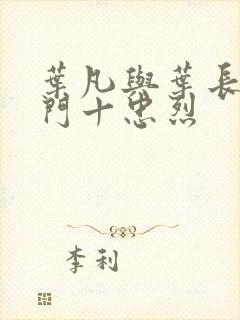 葉凡與葉長
門十忠烈
李利